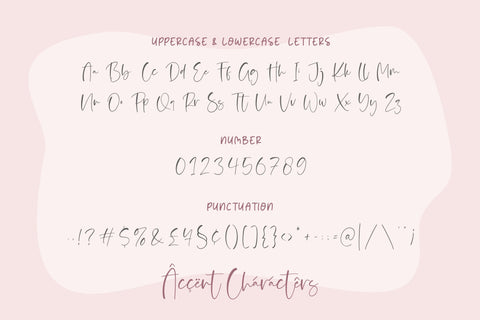 UPPERCASE & LOWERCASE LETTERS
Aa Bb Cc Dd Ee Ff Gg Hh Ii Jj Kk Ll Mm
Nn Oo Pp Qq Rr Ss Tt Uu Vv Ww Xx Yy Zz
NUMBER
0123456789
PUNCTUATION
.,!?#$%&£¥§¢()[]{}<>*+-:;=@|/\¨¡
Âccënt Cháráctêrs